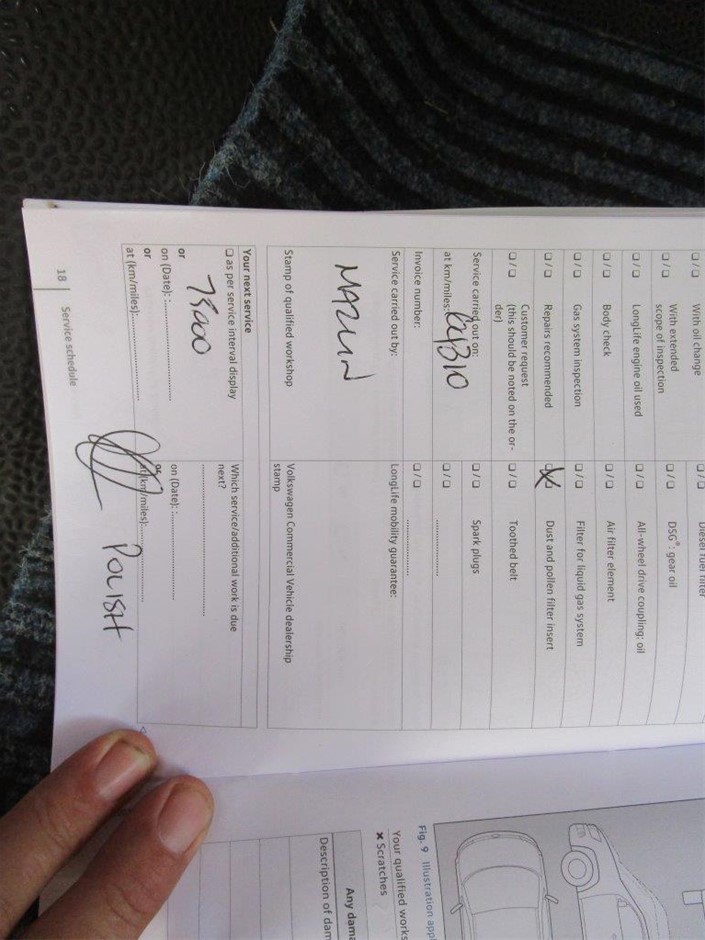 With oil change
With extended
scope of inspection
LongLife engine oil used
Body check
Gas system inspection
Repairs recommended
Customer request
(this should be noted on the or-
der)
Service carried out on:
at km/miles:
Invoice number:
Service carried out by:
Stamp of qualified workshop
Diesel fuel filter
DSG®: gear oil
All-wheel drive coupling: oil
Air filter element
Filter for liquid gas system
Dust and pollen filter insert
Toothed belt
Spark plugs
LongLife mobility guarantee:
Volkswagen Commercial Vehicle dealership
stamp
Your next service
as per service interval display
or
on (Date):
or
at (km/miles):
Which service/additional work is due
next?
on (Date):
or
at (km/miles):
POLISH
18 Service schedule
Fig. 9 Illustration
Your qualified
× Scratches
Any
Description of